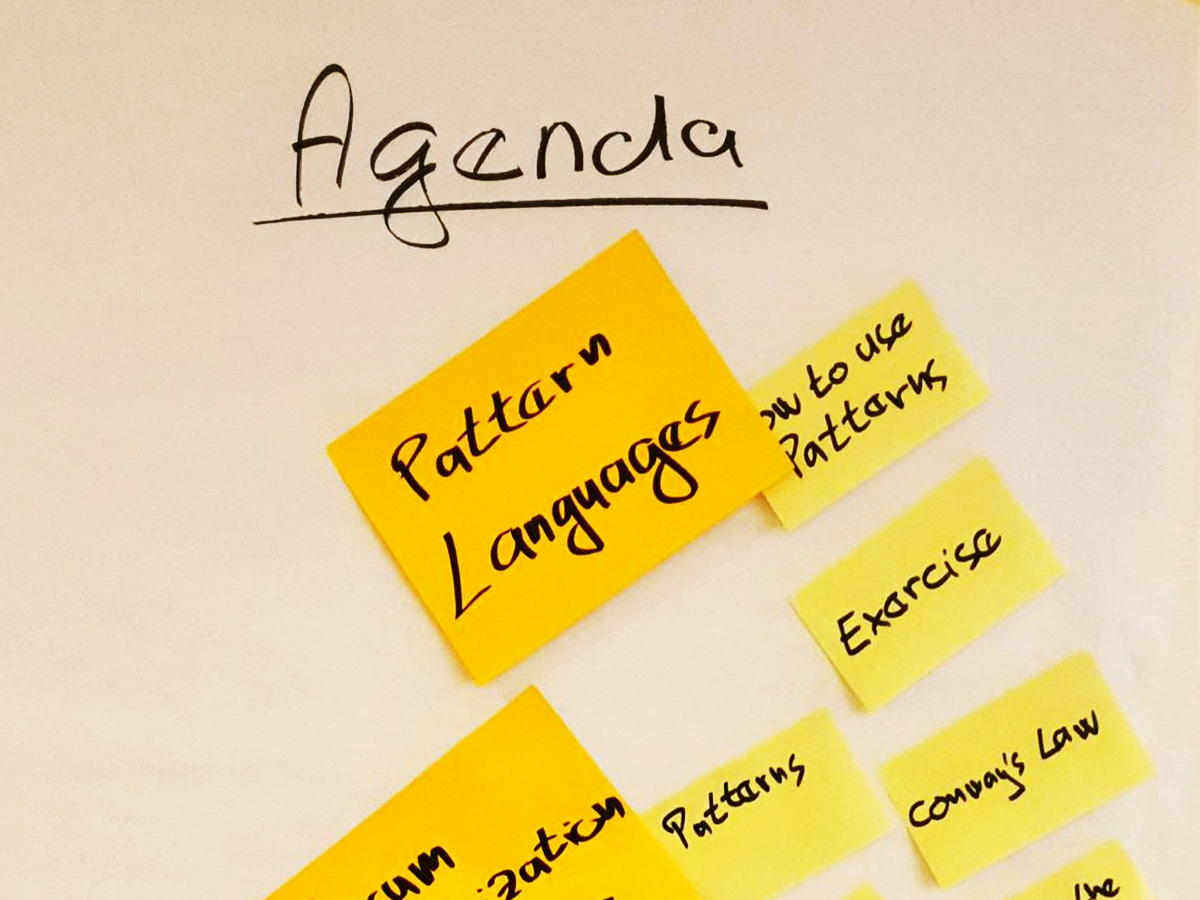 Agenda
Pattern
Languages
to use
Patterns
Exercise
Patterns
Conway's Law
the